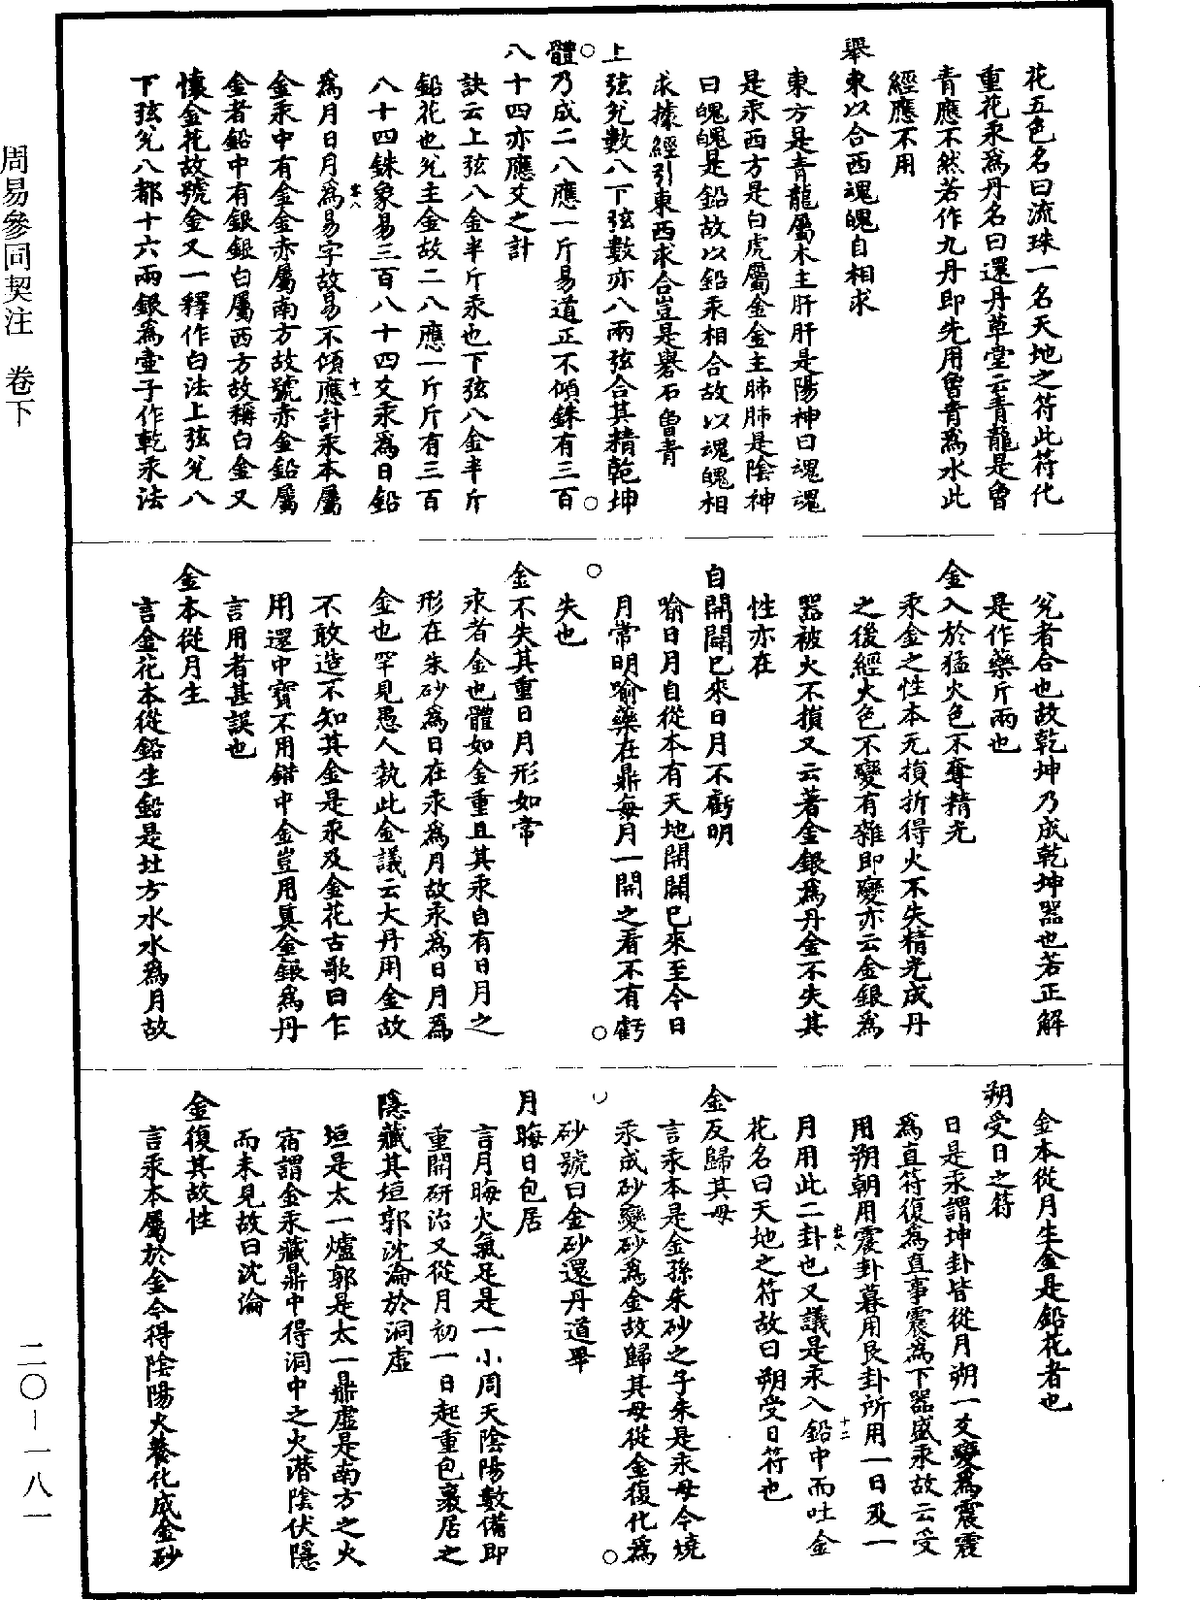 周易參同契注　卷下
花五色名曰流珠一名天地之符此符化
重花汞爲丹名曰還丹草堂云青龍是曾
青應不然若作九丹即先用曾青爲水此
經應不用
舉東以合西魂魄自相求
東方是青龍屬木主肝肝是陽神曰魂魂
是汞西方是白虎屬金金主肺肺是陰神
曰魄魄是鉛故以鉛汞相合故以魂魄相
求據經引東西求合豈是礜石曾青
上弦兌數八下弦數亦八兩弦合其精乾坤
體乃成二八應一斤易道正不傾銖有三百
八十四亦應爻之計
訣云上弦八金半斤汞也下弦八金半斤
鉛花也兌主金故二八應一斤斤有三百
八十四銖象易三百八十四爻汞爲日鉛
爲月日月爲易字故易不傾應計汞本屬
金汞中有金金赤屬南方故號赤金鉛屬
金者鉛中有銀銀白屬西方故稱白金又
懷金花故號金又一釋作白法上弦兌八
下弦兌八都十六兩銀爲壷子作乾汞法
兌者合也故乾坤乃成乾坤器也若正解
是作藥斤兩也
金入於猛火色不奪精光
汞金之性本无損折得火不失精光成丹
之後經火色不變有雜即變亦云金銀爲
器被火不損又云著金銀爲丹金不失其
性亦在
自開闢已來日月不虧明
喻日月自從本有天地開闢已來至今日
月常明喻藥在鼎每月一開之看不有虧
失也
金不失其重日月形如常
汞者金也體如金重且其汞自有日月之
形在朱砂爲日在汞爲月故汞爲日月爲
金也罕見愚人執此金議云大丹用金故
不敢造不知其金是汞及金花古歌曰乍
用還中寶不用錯中金豈用真金銀爲丹
言用者甚誤也
金本從月生
言金花本從鉛生鉛是北方水水爲月故
金本從月生金是鉛花者也
朔受日之符
日是汞謂坤卦皆從月朔一爻變爲震震
爲直符復爲直事震爲下器盛汞故云受
用朔朝用震卦暮用艮卦所用一日及一
月用此二卦也又議是汞入鉛中而吐金
花名曰天地之符故曰朔受日符也
金反歸其母
言汞本是金孫朱砂之子朱是汞母今燒
汞成砂變砂爲金故歸其母從金復化爲
砂號曰金砂還丹道畢
月晦日包居
言月晦火氣足是一小周天陰陽數備即
重開研治又從月初一日起重包裹居之
隱藏其垣郭沈淪於洞虛
垣是太一爐郭是太一鼎虛是南方之火
宿謂金汞藏鼎中得洞中之火潛陰伏隱
而未見故曰沈淪
金復其故性
言汞本屬於金今得陰陽火養化成金砂
二〇－一八一